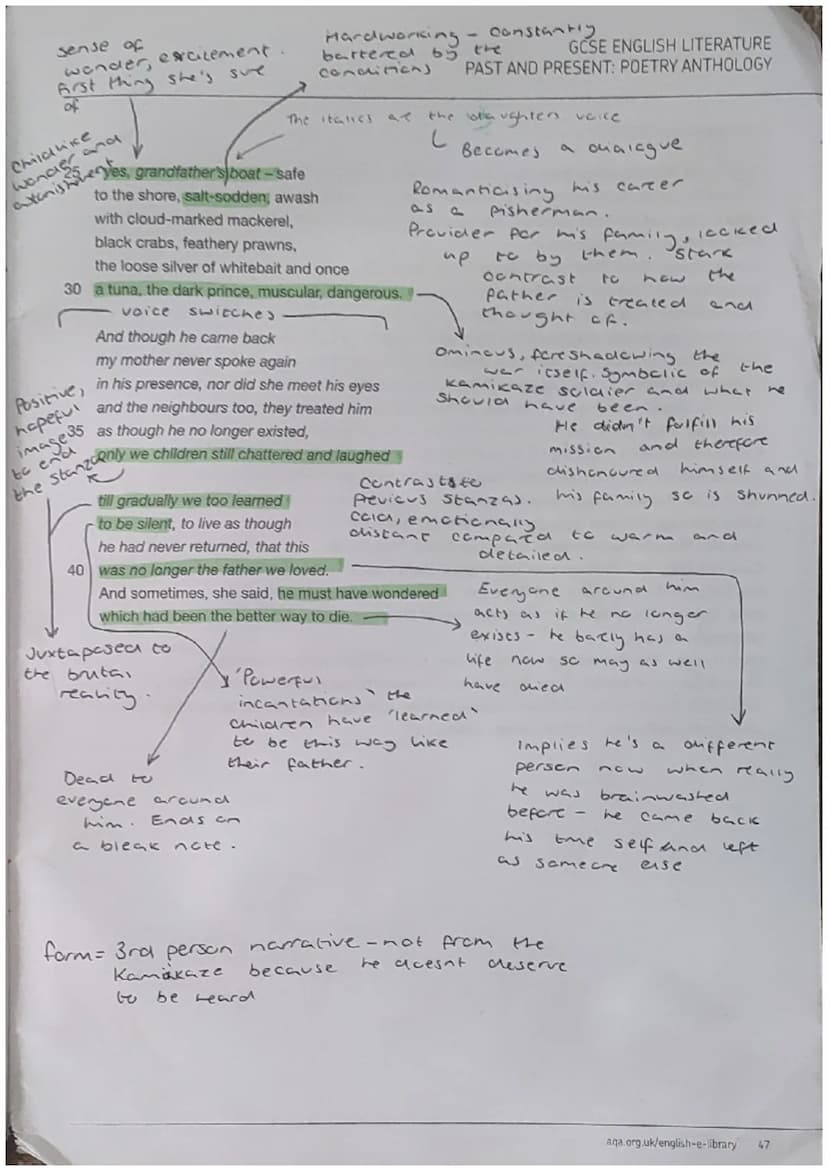 GCSE ENGLISH LITERATURE
PAST AND PRESENT: POETRY ANTHOLOGY
sense of
wonder, excitement.
first thing she's sure
of
Hardworking - constantly
battered by the
conditions
The italics are the daughters voice
Becomes a dialogue
Childlike
wonder and
astonishment
25 yes, grandfather's boat – safe
to the shore, salt-sodden, awash
with cloud-marked mackerel,
black crabs, feathery prawns,
the loose silver of whitebait and once
30 a tuna, the dark prince, muscular, dangerous.
Romanticising his career
as a fisherman.
Provider for his family, looked
up to by them. Stark
contrast to how the
father is treated and
thought of.
voice switches
And though he came back
my mother never spoke again
in his presence, nor did she meet his eyes
and the neighbours too, they treated him
35 as though he no longer existed,
only we children still chattered and laughed
Ominous, foreshadowing the
war itself. Symbolic of the
kamikaze soldier and what he
should have been.
He didn't fulfill his
mission and therefore
dishonoured himself and
his family so is shunned.
Positive,
hopeful
image
to end
the stanza
till gradually we too learned
to be silent, to live as though
he had never returned, that this
40 was no longer the father we loved.
And sometimes, she said, he must have wondered
which had been the better way to die.
Contrasts to
previous stanzas.
Cold, emotionally
distant compared to warm and
detailed.
Everyone around him
acts as if he no longer
exists - he barely has a
life now so may as well
have died
Juxtaposed to
the brutal
reality.
'Powerful
incantations' the
children have 'learned'
to be this way like
their father.
Dead to
everyone around
him. Ends on
a bleak note.
Implies he's a different
person now when really
he was brainwashed
before - he came back
his true self and left
as someone else
form = 3rd person narrative - not from the
Kamikaze because he doesnt deserve
to be heard
aqa.org.uk/english-e-library 47